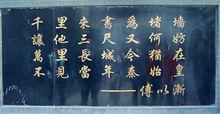 千里來書為堵墙
讓他三尺又何妨
萬里長城今猶在
不見當年秦始皇